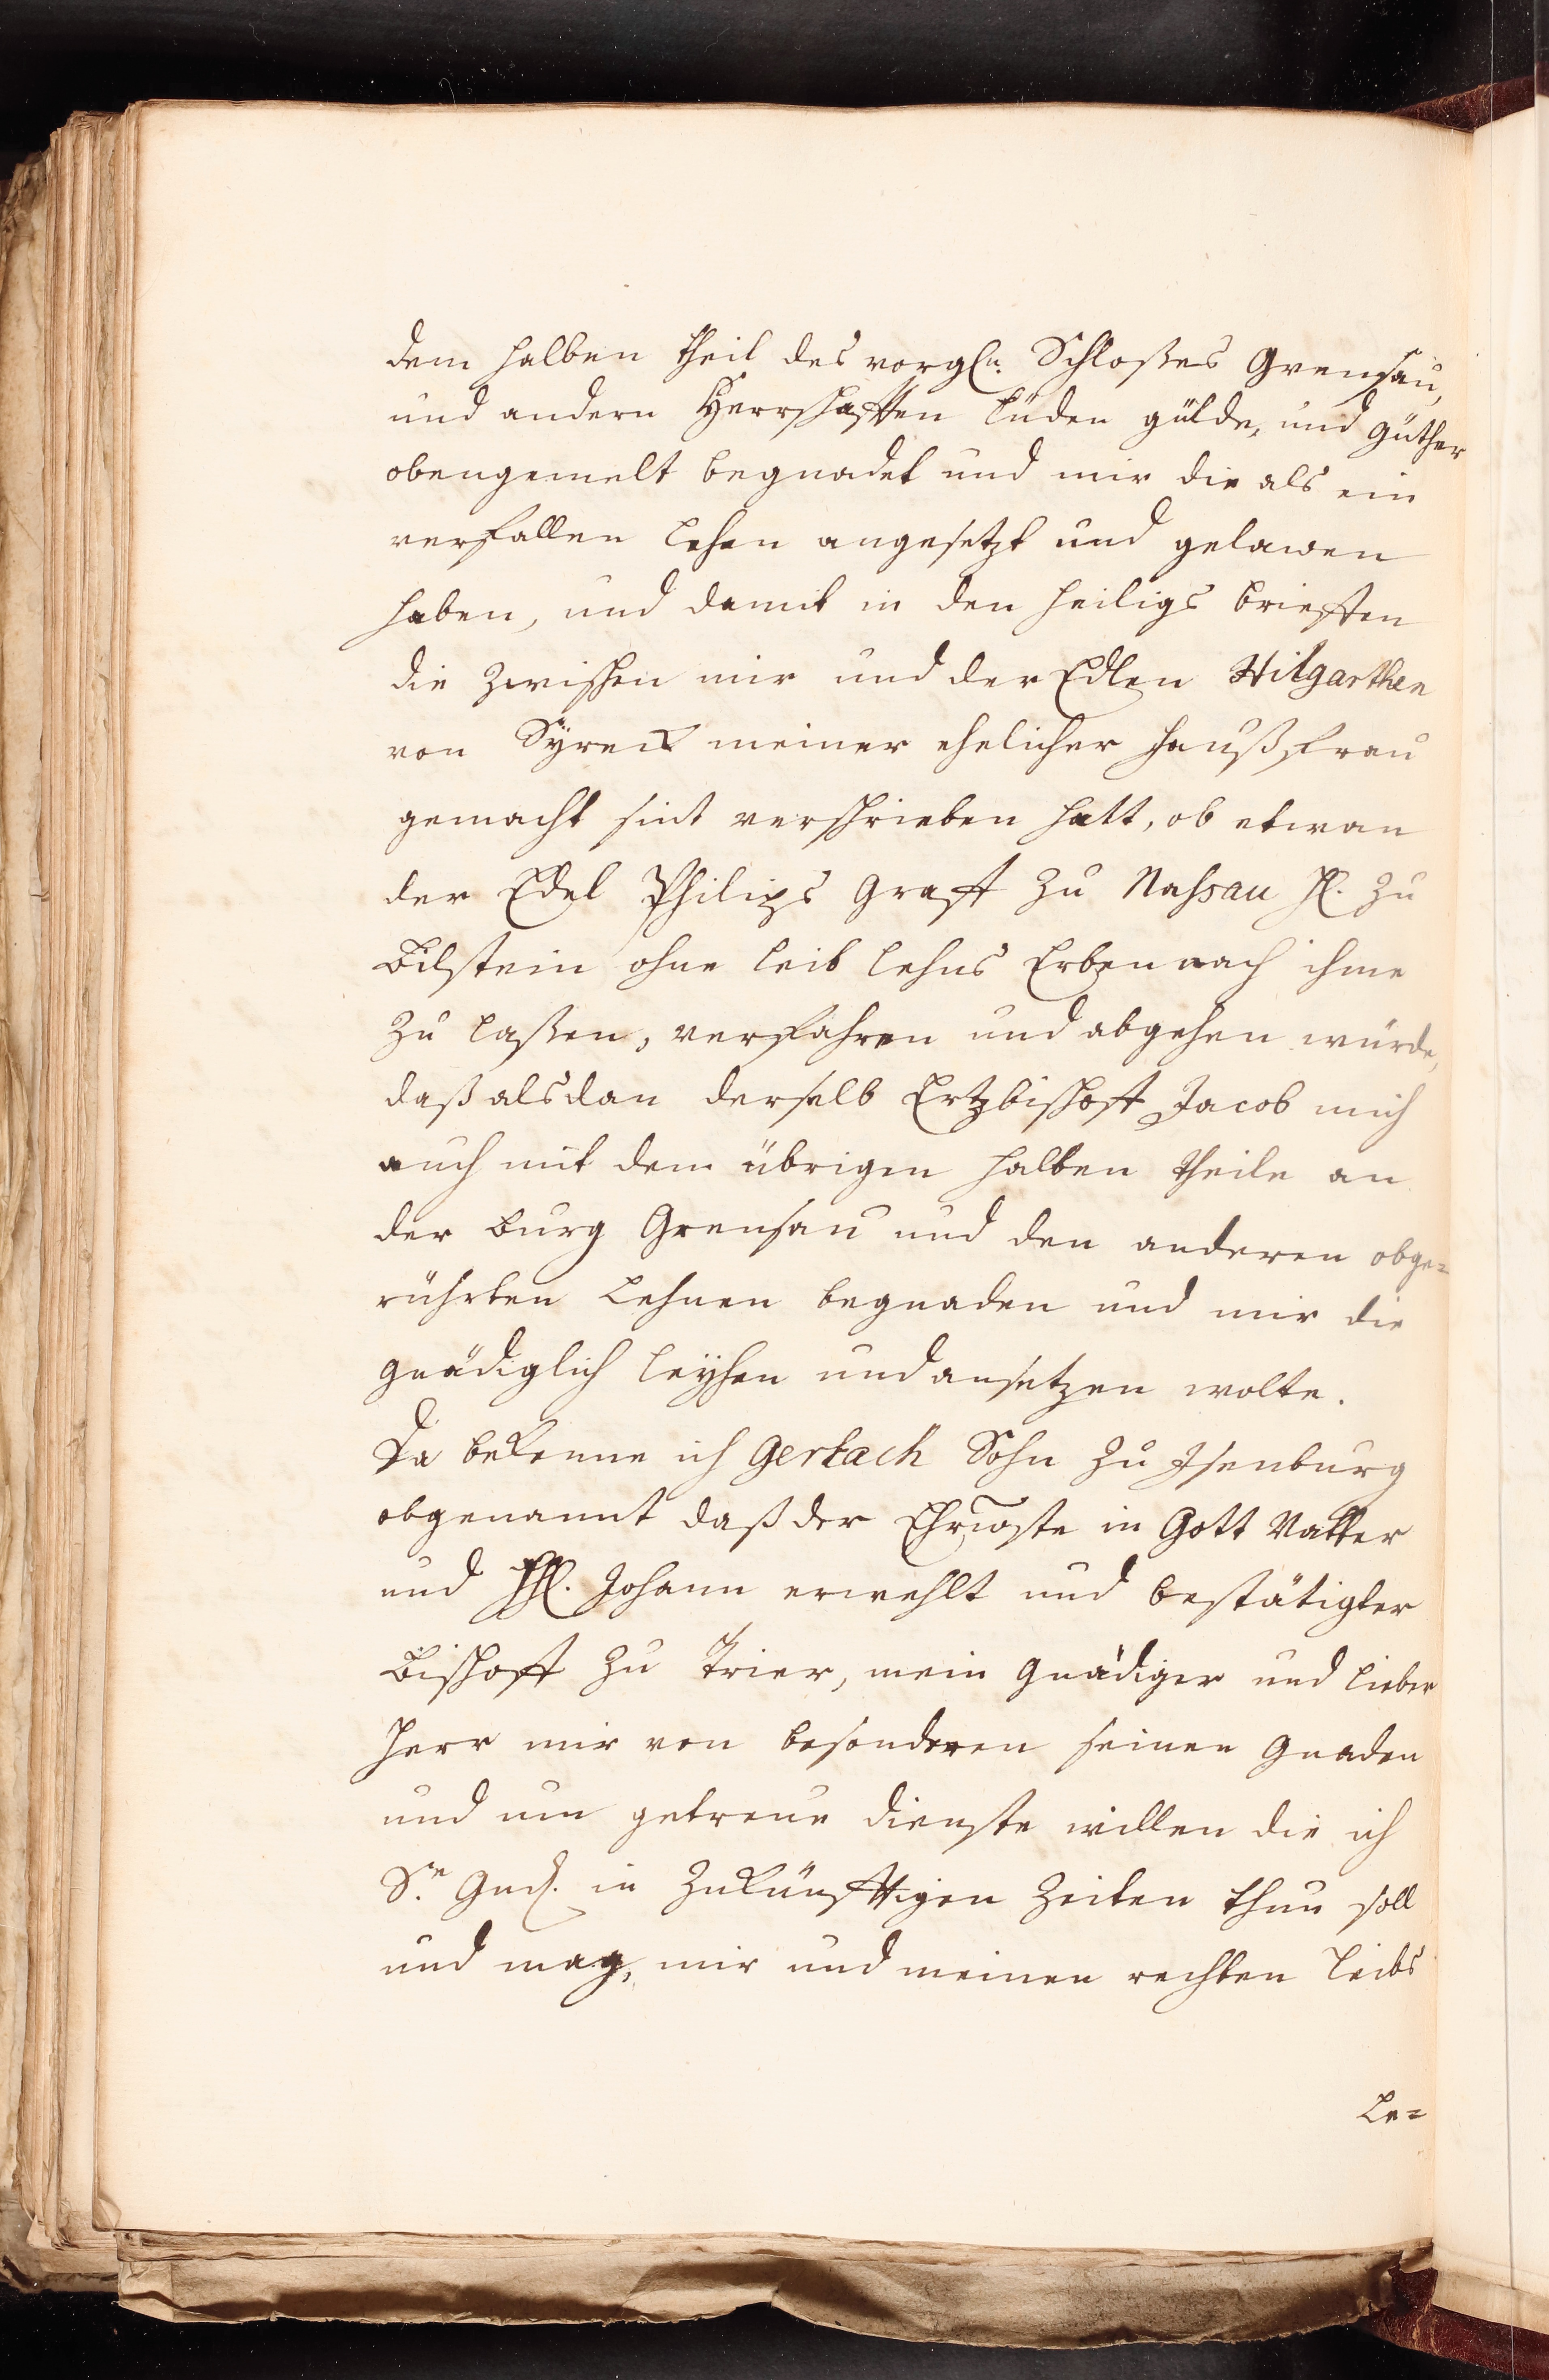 dem halben theil des vorgln. Schloßes Grensau,
und andern Herrschafften lüden gülde, und güther
obengemelt begnadet und mir die als ein
verfallen lehen angesetzt und gelawen
haben, und damit in den heiligs brieffen
die zwischen mir und der Edlen Hilgarthen
von Syreck meiner ehelicher haußfrau
gemacht sint verschrieben hatt, ob etwan
der Edel Philips Graff zu Nassau H. zu
Bilstein ohne leib lehns Erben nach ihme
zu laßen, verfahren und abgehen würde,
daß alsdan derselb Ertzbischoff Jacob mich
auch mit dem übrigen halben theile an
der burg Grensau und den anderen obge=
rührten Lehnen begnaden und mir die
gnädiglich leyhen und ansetzen wolte.
Da bekenne ich Gerlach Sohn zu Isenburg
obgenannt daß der Ehrwste in Gott Vatter
und HH. Johann erwehlt und bestätigter
Bischoff zu Trier, mein gnädiger und lieber
Herr mir von besonderen seinen Gnaden
und um getreue dienste willen die ich
Sr. Gnd. in zukünfftigen Zeiten thun soll
und mag, mir und meinen rechten leibs
Le=